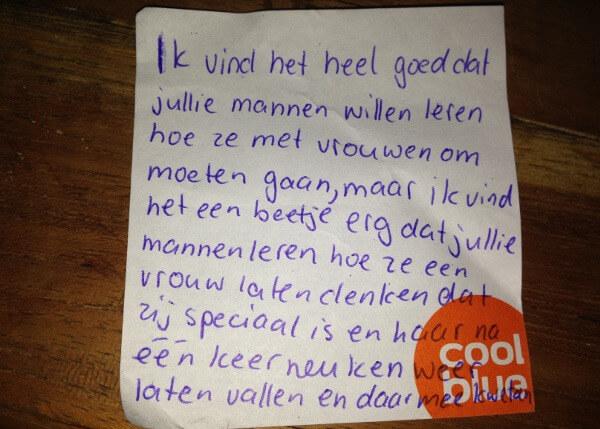 Ik vind het heel goed dat
jullie mannen willen leren
hoe ze met vrouwen om
moeten gaan, maar ik vind
het een beetje erg dat jullie
mannen leren hoe ze een
vrouw laten denken dat
zij speciaal is en haar na
één keer neuken weer
laten vallen en daarmee kwetsen
cool
blue